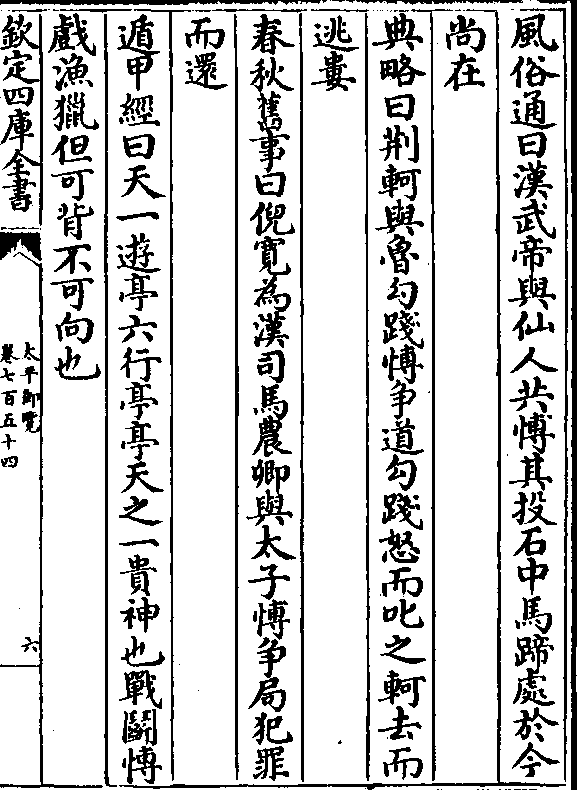 風俗通曰漢武帝與仙人共愽其投石中馬蹄處於今
尚在
典略曰荆軻與魯勾踐愽争道勾踐怒而叱之軻去而
逃婁
春秋舊事曰倪寛為漢司馬農卿與太子愽争局犯罪
而還
遁甲經曰天一遊亭六行亭亭天之一貴神也戰鬭愽
戲漁獵但可背不可向也
欽定四庫全書
太平御覽
卷七百五十四
六